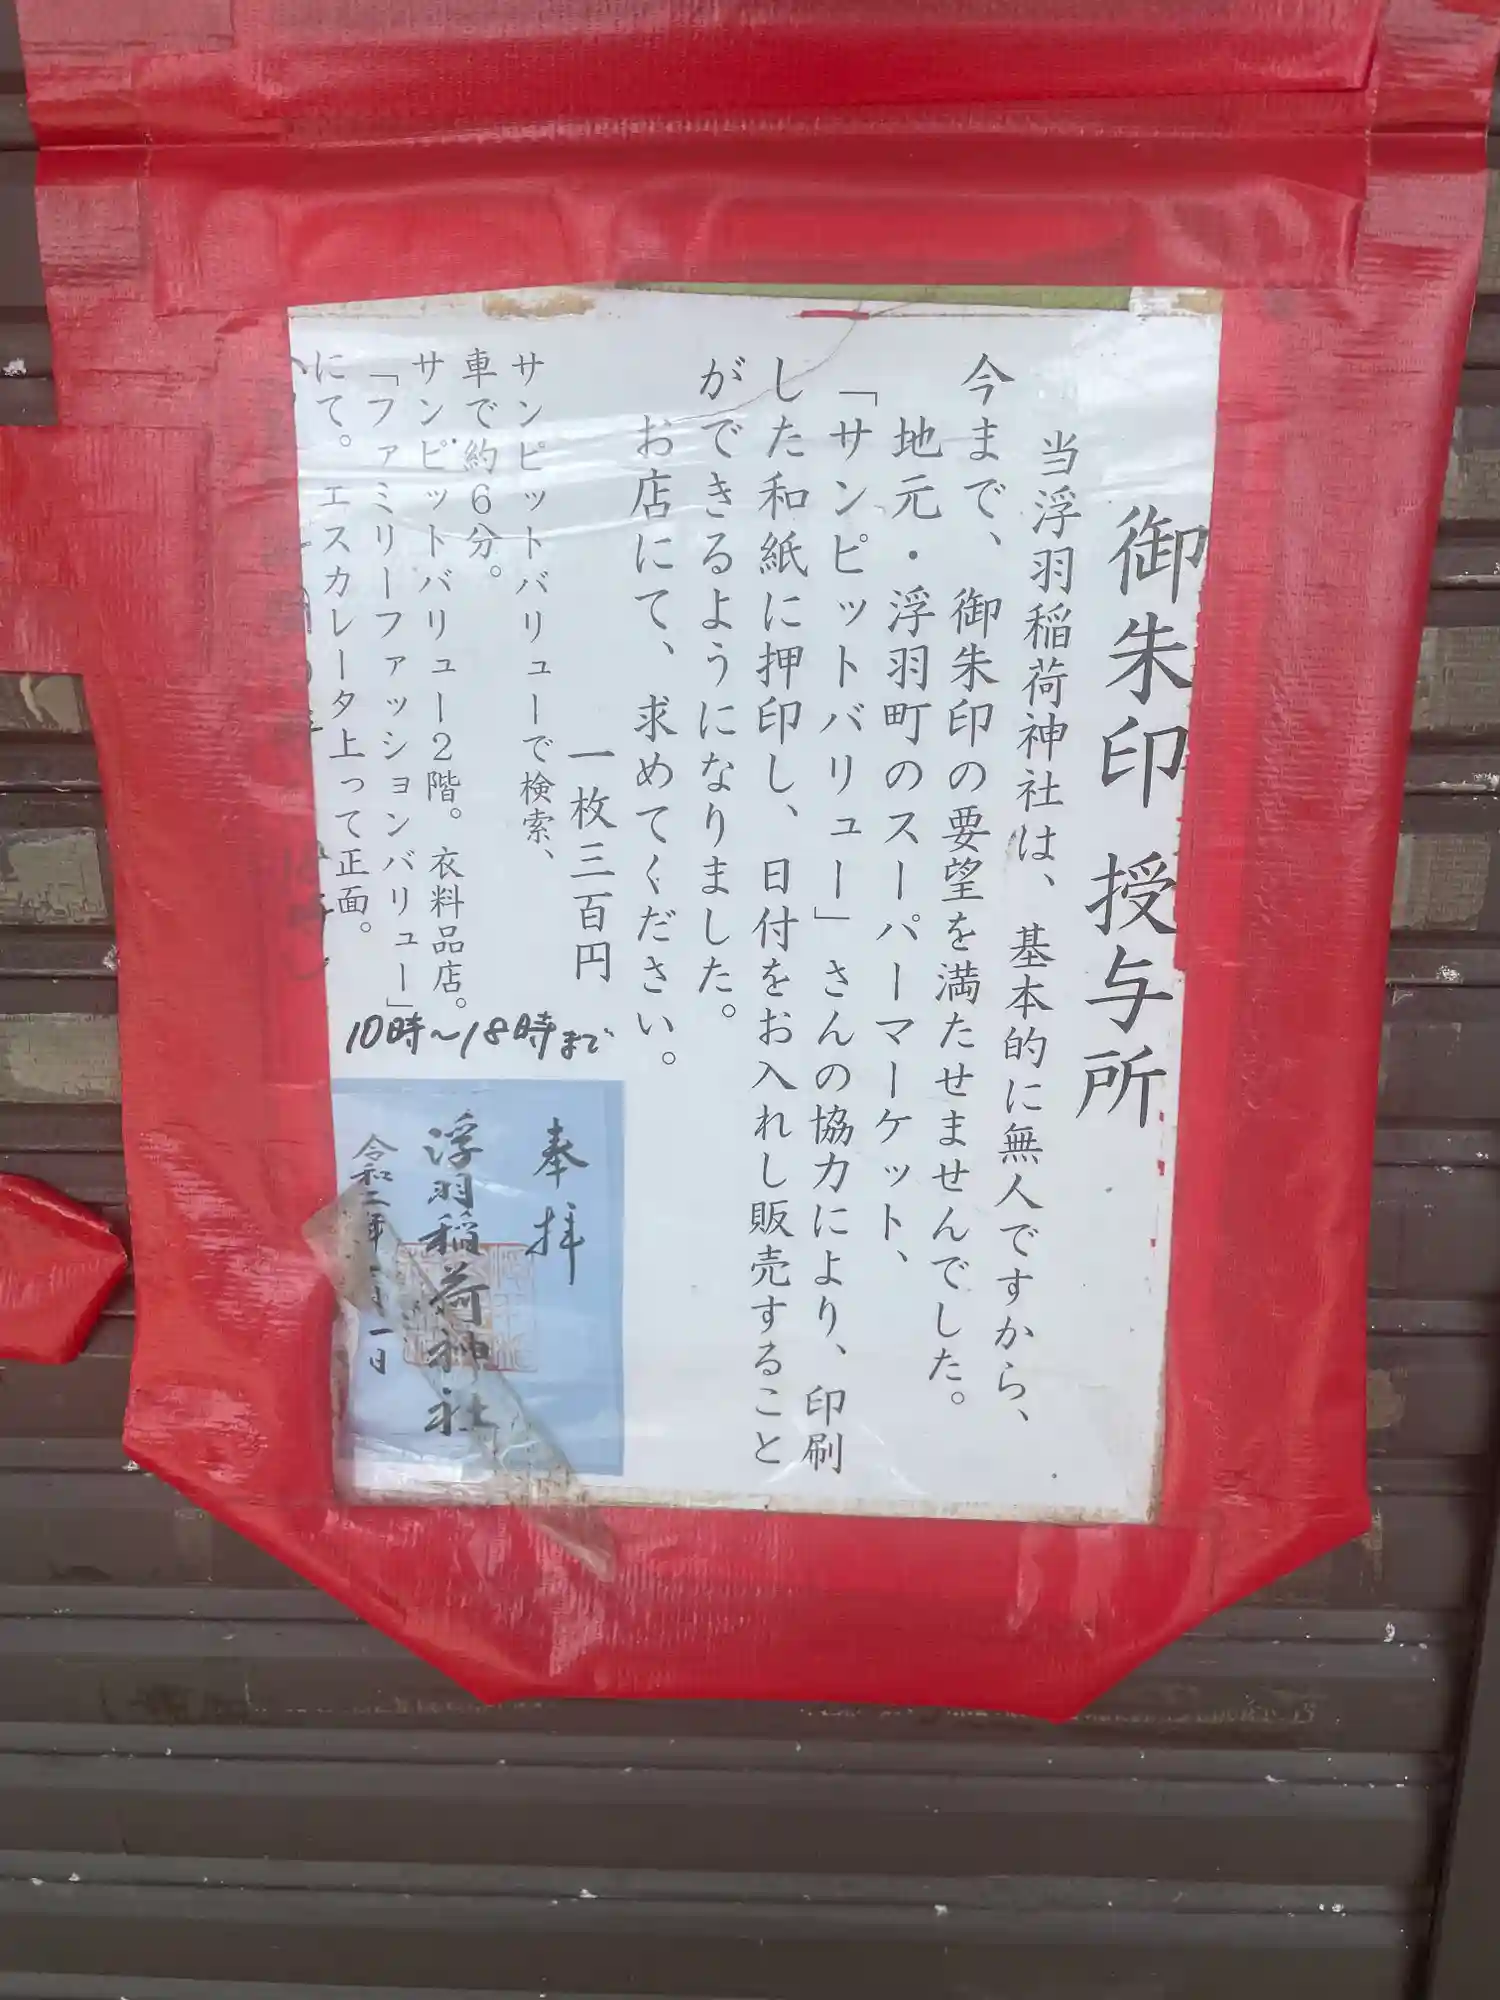 御朱印 授与所
当浮羽稲荷神社は、基本的に無人ですから、
今まで、御朱印の要望を満たせませんでした。
地元・浮羽町のスーパーマーケット、
「サンピットバリュー」さんの協力により、印刷
した和紙に押印し、日付をお入れし販売すること
ができるようになりました。
お店にて、求めてください。
一枚三百円
サンピットバリューで検索、
車で約6分。
サンピットバリュー2階。衣料品店。
「ファミリーファッションバリュー」
にて。エスカレータ上って正面。
10時~18時まで
奉拝
浮羽稲荷神社
令和二年 月一日